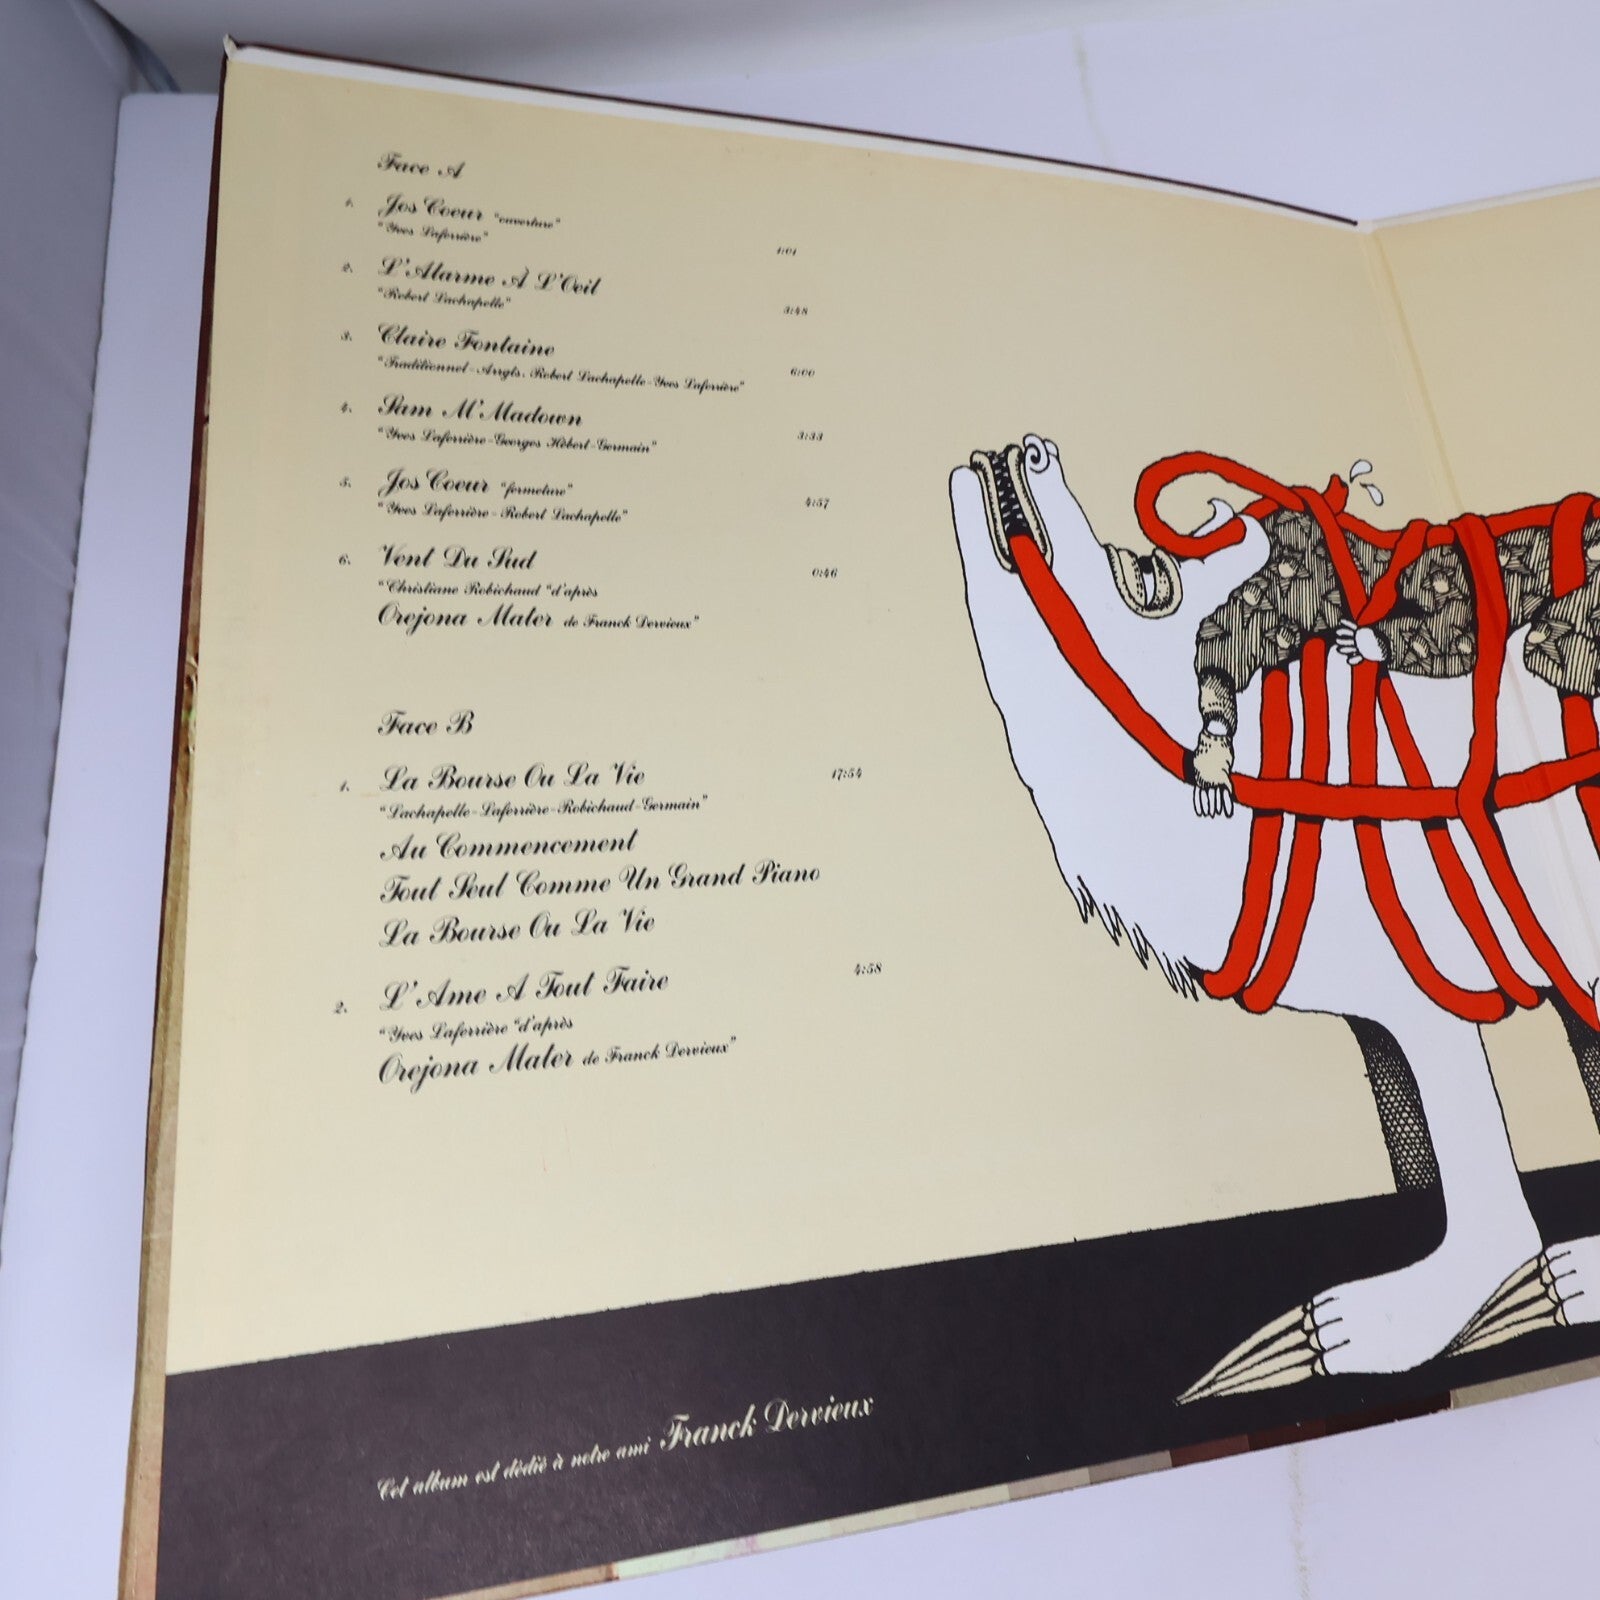 Face A
1. Jos Coeur "ouverture"
"Yves Laferrière"
1:01
2. L'Alarme À L'Oeil
"Robert Lachapelle"
3:48
3. Claire Fontaine
"Traditionnel-Arrgts. Robert Lachapelle-Yves Laferrière"
6:00
4. Sam M'Madown
"Yves Laferrière-Georges Hébert-Germain"
3:33
5. Jos Coeur "fermeture"
"Yves Laferrière-Robert Lachapelle"
4:57
6. Vent Du Sud
"Christiane Robichaud "d'après
Orejona Mater de Franck Dervieux"
0:46
Face B
1. La Bourse Ou La Vie 17:54
"Lachapelle-Laferrière-Robichaud-Germain"
Au Commencement
Tout Seul Comme Un Grand Piano
La Bourse Ou La Vie
2. L'Ame A Tout Faire 4:58
"Yves Laferrière "d'après
Orejona Mater de Franck Dervieux"
Cet album est dédié à notre ami Franck Dervieux